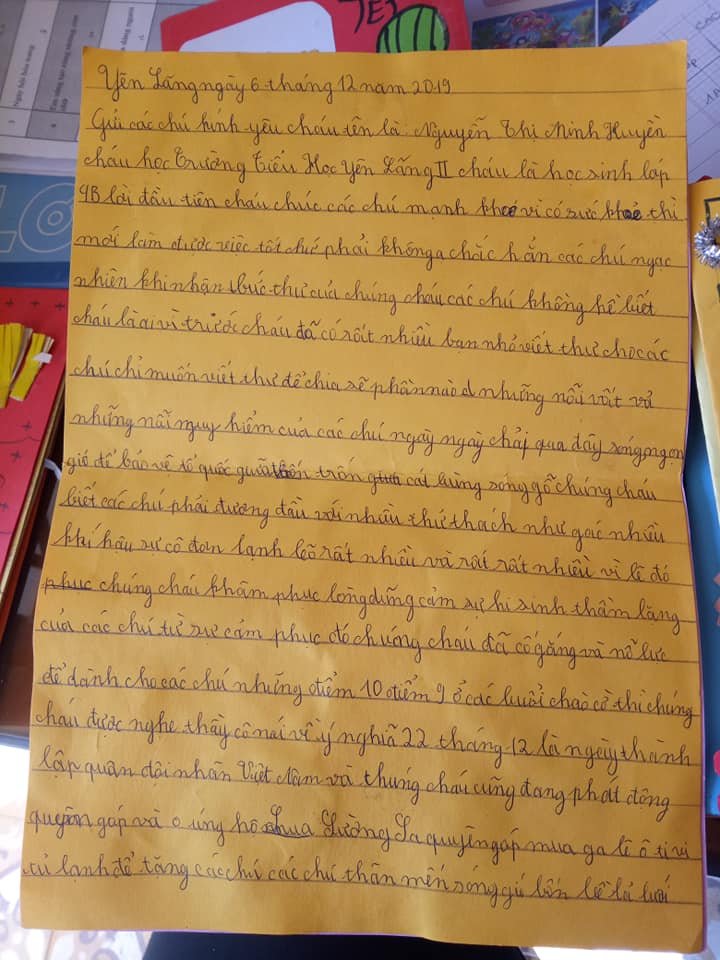 TẾT
Yên Lãng ngày 6 tháng 12 năm 2019
Gửi các chú kính yêu cháu tên là: Nguyễn Thị Minh Huyền
cháu học Trường Tiểu Học Yên Lãng II cháu là học sinh lớp
4B lời đầu tiên cháu chúc các chú mạnh khoẻ vì có sức khoẻ thì
mới làm được việc tốt chứ phải không ạ chắc hẳn các chú ngạc
nhiên khi nhận bức thư của chúng cháu các chú không hề biết
cháu là ai vì trước cháu đã có rất nhiều bạn nhỏ viết thư cho các
chú chỉ muốn viết thư để chia sẽ phần nào những nỗi vất vả
những nỗi nguy hiểm của các chú ngày ngày chải qua đầy sóng ngọn
gió để bảo vệ tổ quốc giữa bốn trốn cát lùng sóng gỗ chúng cháu
biết các chú phải đương đầu với nhiều thử thách như gác nhiều
khí hậu sự cô đơn lạnh lẽo rất nhiều và rất rất nhiều vì lẽ đó
phục chúng cháu khâm phục lòng dũng cảm sự hi sinh thầm lặng
của các chú từ sự cảm phục đó chúng cháu đã cố gắng và nỗ lực
để dành cho các chú những điểm 10 điểm 9 ở các buổi chào cờ thì chúng
cháu được nghe thầy cô nói về ý nghĩã 22 tháng 12 là ngày thành
lập quân đội nhân Việt Nam và thúng cháu cũng đang phát động
quyên gáp và ủng hộ Trường Sa quyên góp mua ga lê ô ti vi
tủ lạnh để tặng các chú các chú thân mến sóng gú lớn lề lả lưới